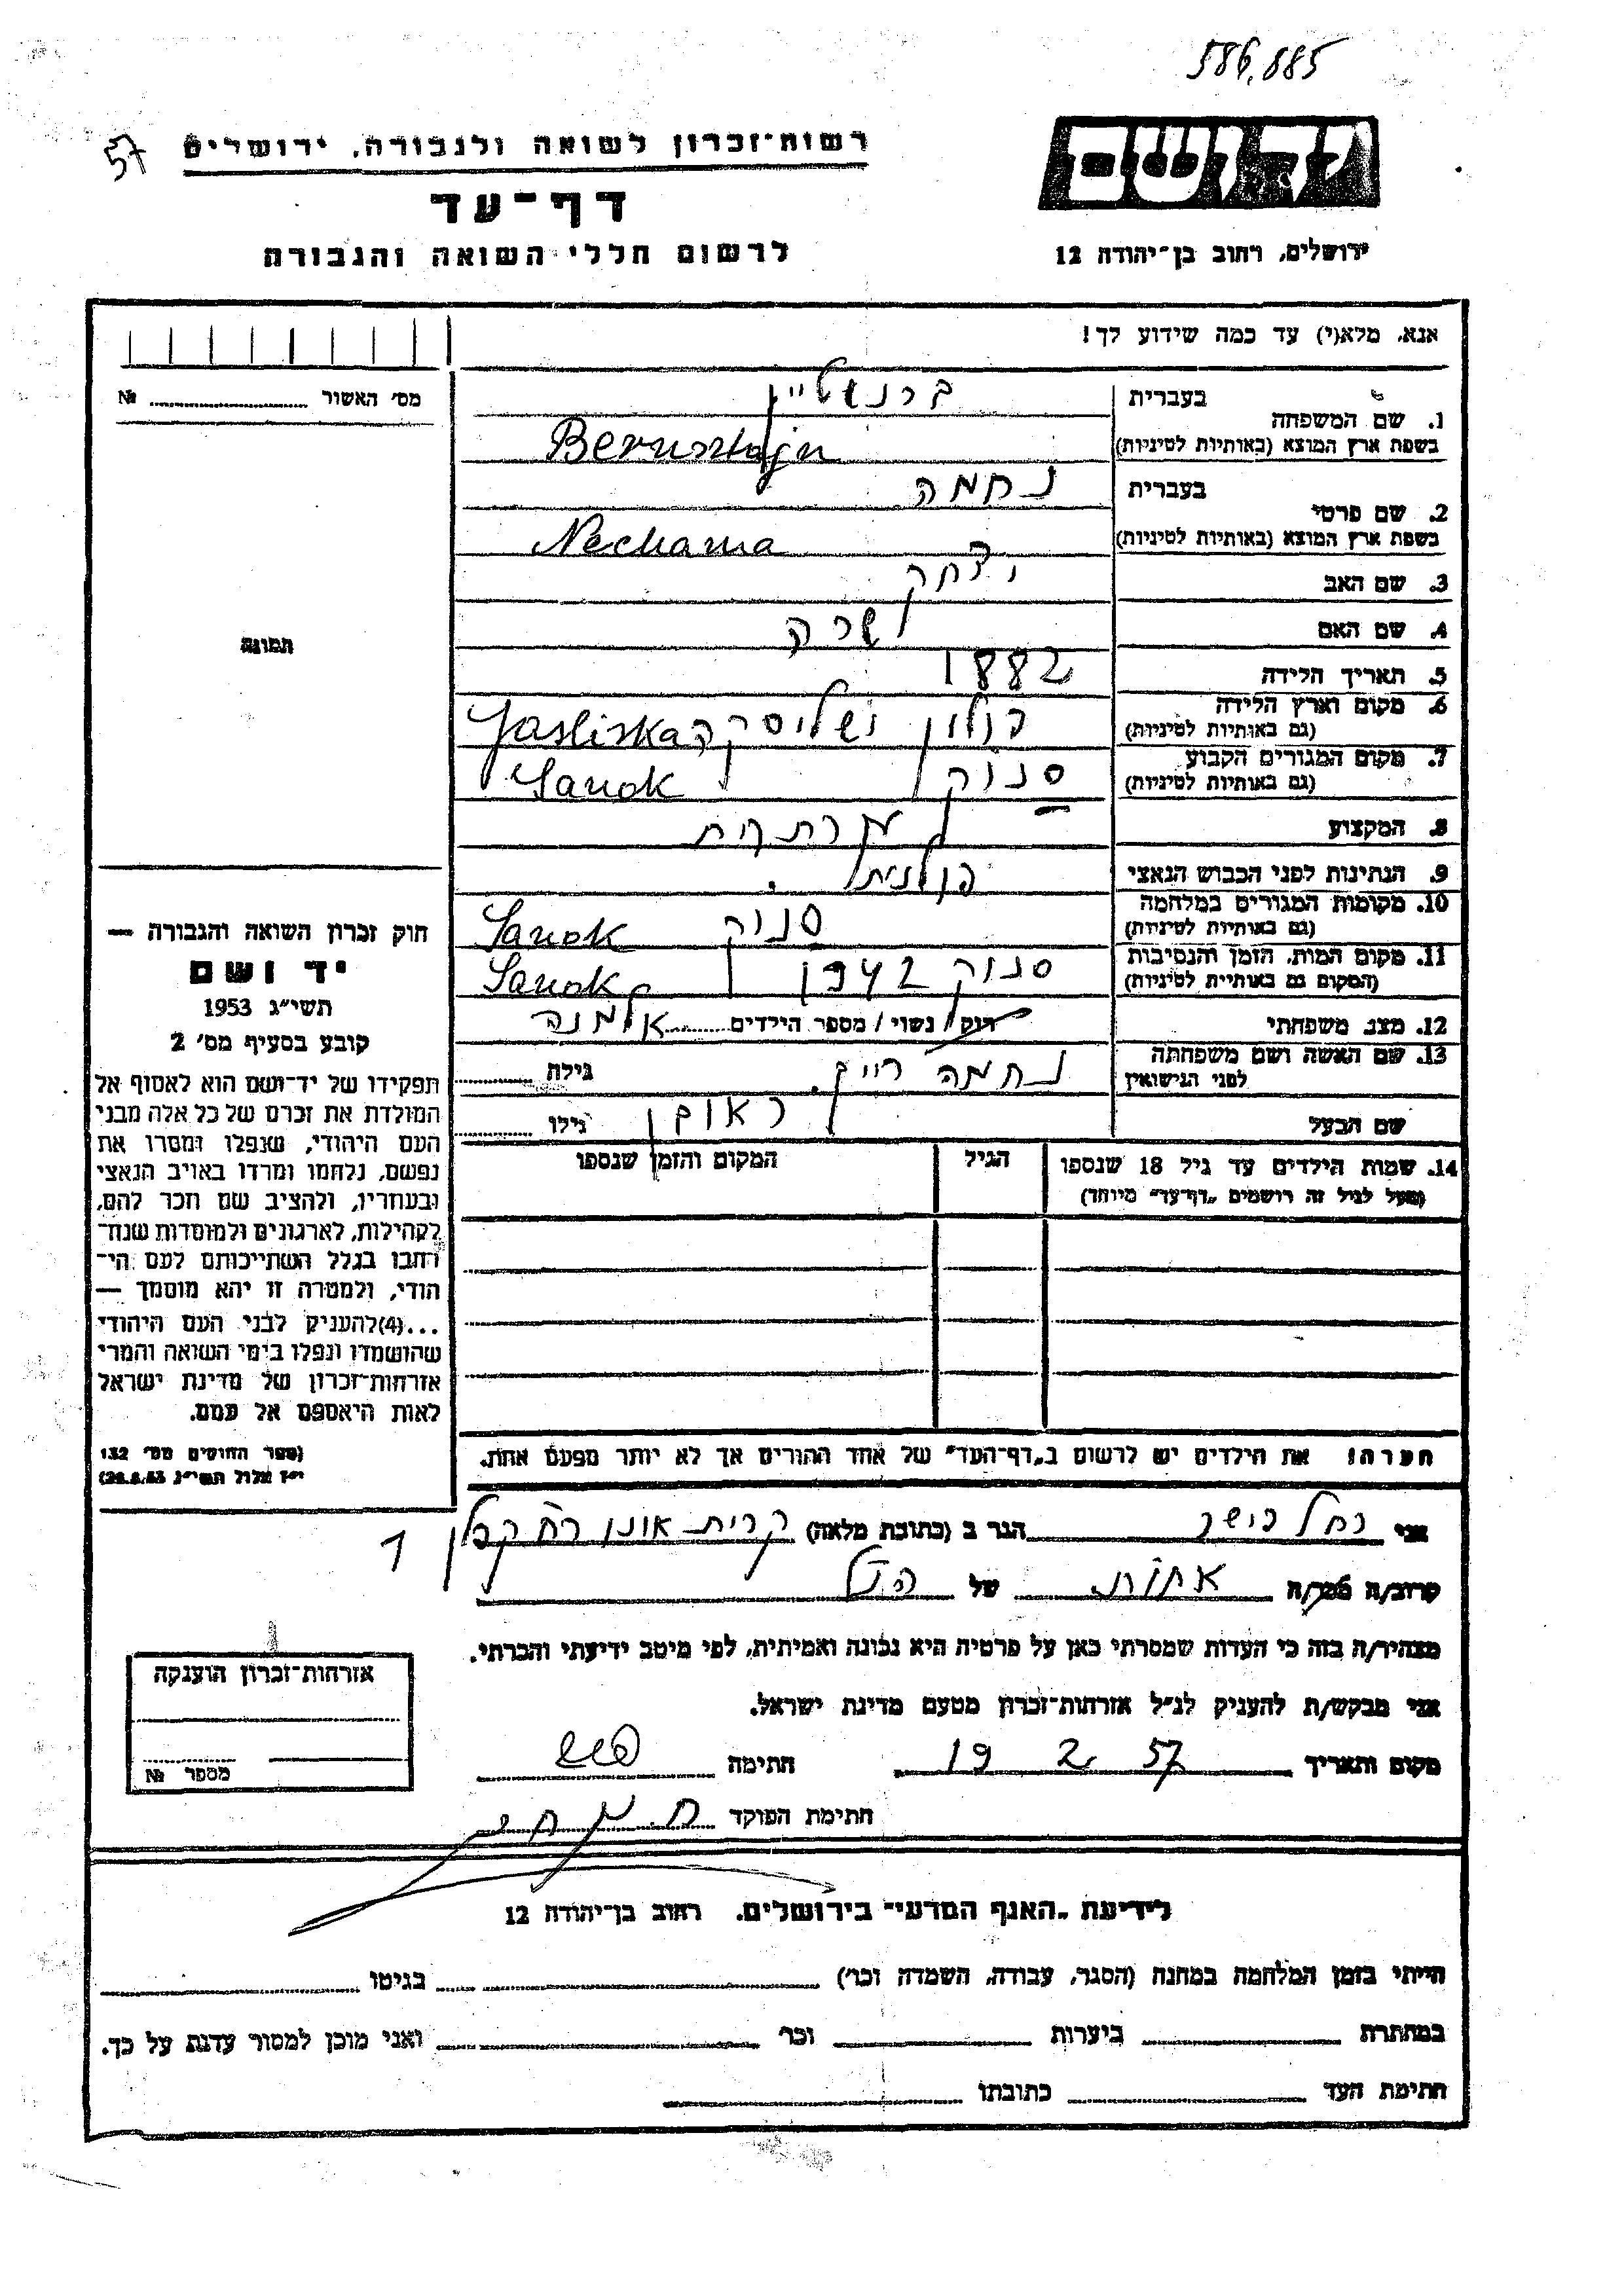 586,885
57
רשות־זכרון לשואה ולגבורה, ירושלים
יד ושם
דף־עד
לרשום חללי השואה והגבורה
ירושלים, רחוב בן־יהודה 12
אנא, מלא(י) עד כמה שידוע לך!
מס׳ האשור № 
1. שם המשפחה בעברית ברנשטיין
בשפת ארץ המוצא (באותיות לטיניות) Bernsztajn
2. שם פרטי בעברית נחמה
בשפת ארץ המוצא (באותיות לטיניות) Nechama
3. שם האב יצחק
4. שם האם שרה
תמונה
5. תאריך הלידה 1882
6. מקום וארץ הלידה (גם באותיות לטיניות) פולין ושליסקה Jasliska
7. מקום המגורים הקבוע (גם באותיות לטיניות) סנוק Sanok
8. המקצוע
9. הנתינות לפני הכבוש הנאצי פולנית.
10. מקומות המגורים במלחמה (גם באותיות לטיניות) סנוק Sanok
11. מקום המות, הזמן והנסיבות (המקום גם באותיות לטיניות) סנוק 1942 Sanok
12. מצב משפחתי רוק/נשוי/מספר הילדים אלמנה
13. שם האשה ושם משפחתה לפני הנישואין נחמה רייך. גילה
שם הבעל ראובן גילו
14. שמות הילדים עד גיל 18 שנספו הגיל המקום והזמן שנספו
(מעל לגיל זה רושמים „דף־עד״ מיוחד)
הערה! את הילדים יש לרשום ב„דף־העד״ של אחד ההורים אך לא יותר מפעם אחת.
חוק זכרון השואה והגבורה —
יד ושם
תשי״ג 1953
קובע בסעיף מס׳ 2
תפקידו של יד־ושם הוא לאסוף אל
המולדת את זכרם של כל אלה מבני
העם היהודי, שנפלו ומסרו את
נפשם, נלחמו ומרדו באויב הנאצי
ובעוזריו, ולהציב שם וזכר להם,
לקהילות, לארגונים ולמוסדות שנח־
רבו בגלל השתייכותם לעם הי־
הודי, ולמטרה זו יהא מוסמך —
...(4)להעניק לבני העם היהודי
שהושמדו ונפלו בימי השואה והמרי
אזרחות־זכרון של מדינת ישראל
לאות היאספם אל עמם.
(ספר החוקים מס׳ 132
י״ז אלול תשי״ג 28.8.53)
אני רחל פישר הגר ב (כתובת מלאה) קרית אונו רח׳ קפלן 1
קרוב/ה מכר/ה אחות של הנ״ל
מצהיר/ה בזה כי העדות שמסרתי כאן על פרטיה היא נכונה ואמיתית, לפי מיטב ידיעתי והכרתי.
אני מבקש/ת להעניק לנ״ל אזרחות־זכרון מטעם מדינת ישראל.
מקום ותאריך 19 2 57 חתימה
חתימת הפוקד
אזרחות־זכרון הוענקה
מספר №
לידיעת „האגף המדעי״ בירושלים, רחוב בן־יהודה 12
הייתי בזמן המלחמה במחנה (הסגר, עבודה, השמדה וכו׳) בגיטו
במחתרת ביערות וכו׳ ואני מוכן למסור עדות על כך.
חתימת העד כתובתו